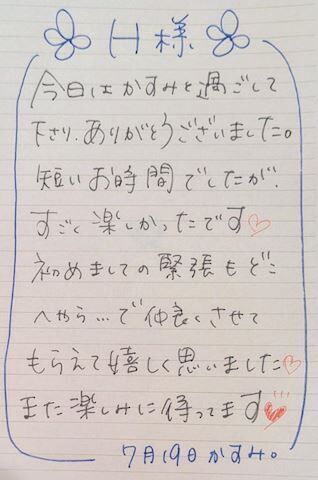 H様
今日はかすみと過ごして
下さり、ありがとうございました。
短いお時間でしたが、
すごく楽しかったです♡
初めましての緊張もどこ
へやら…で仲良くさせて
もらえて嬉しく思いました♡
また楽しみに待ってます♥
7月19日 かすみ。